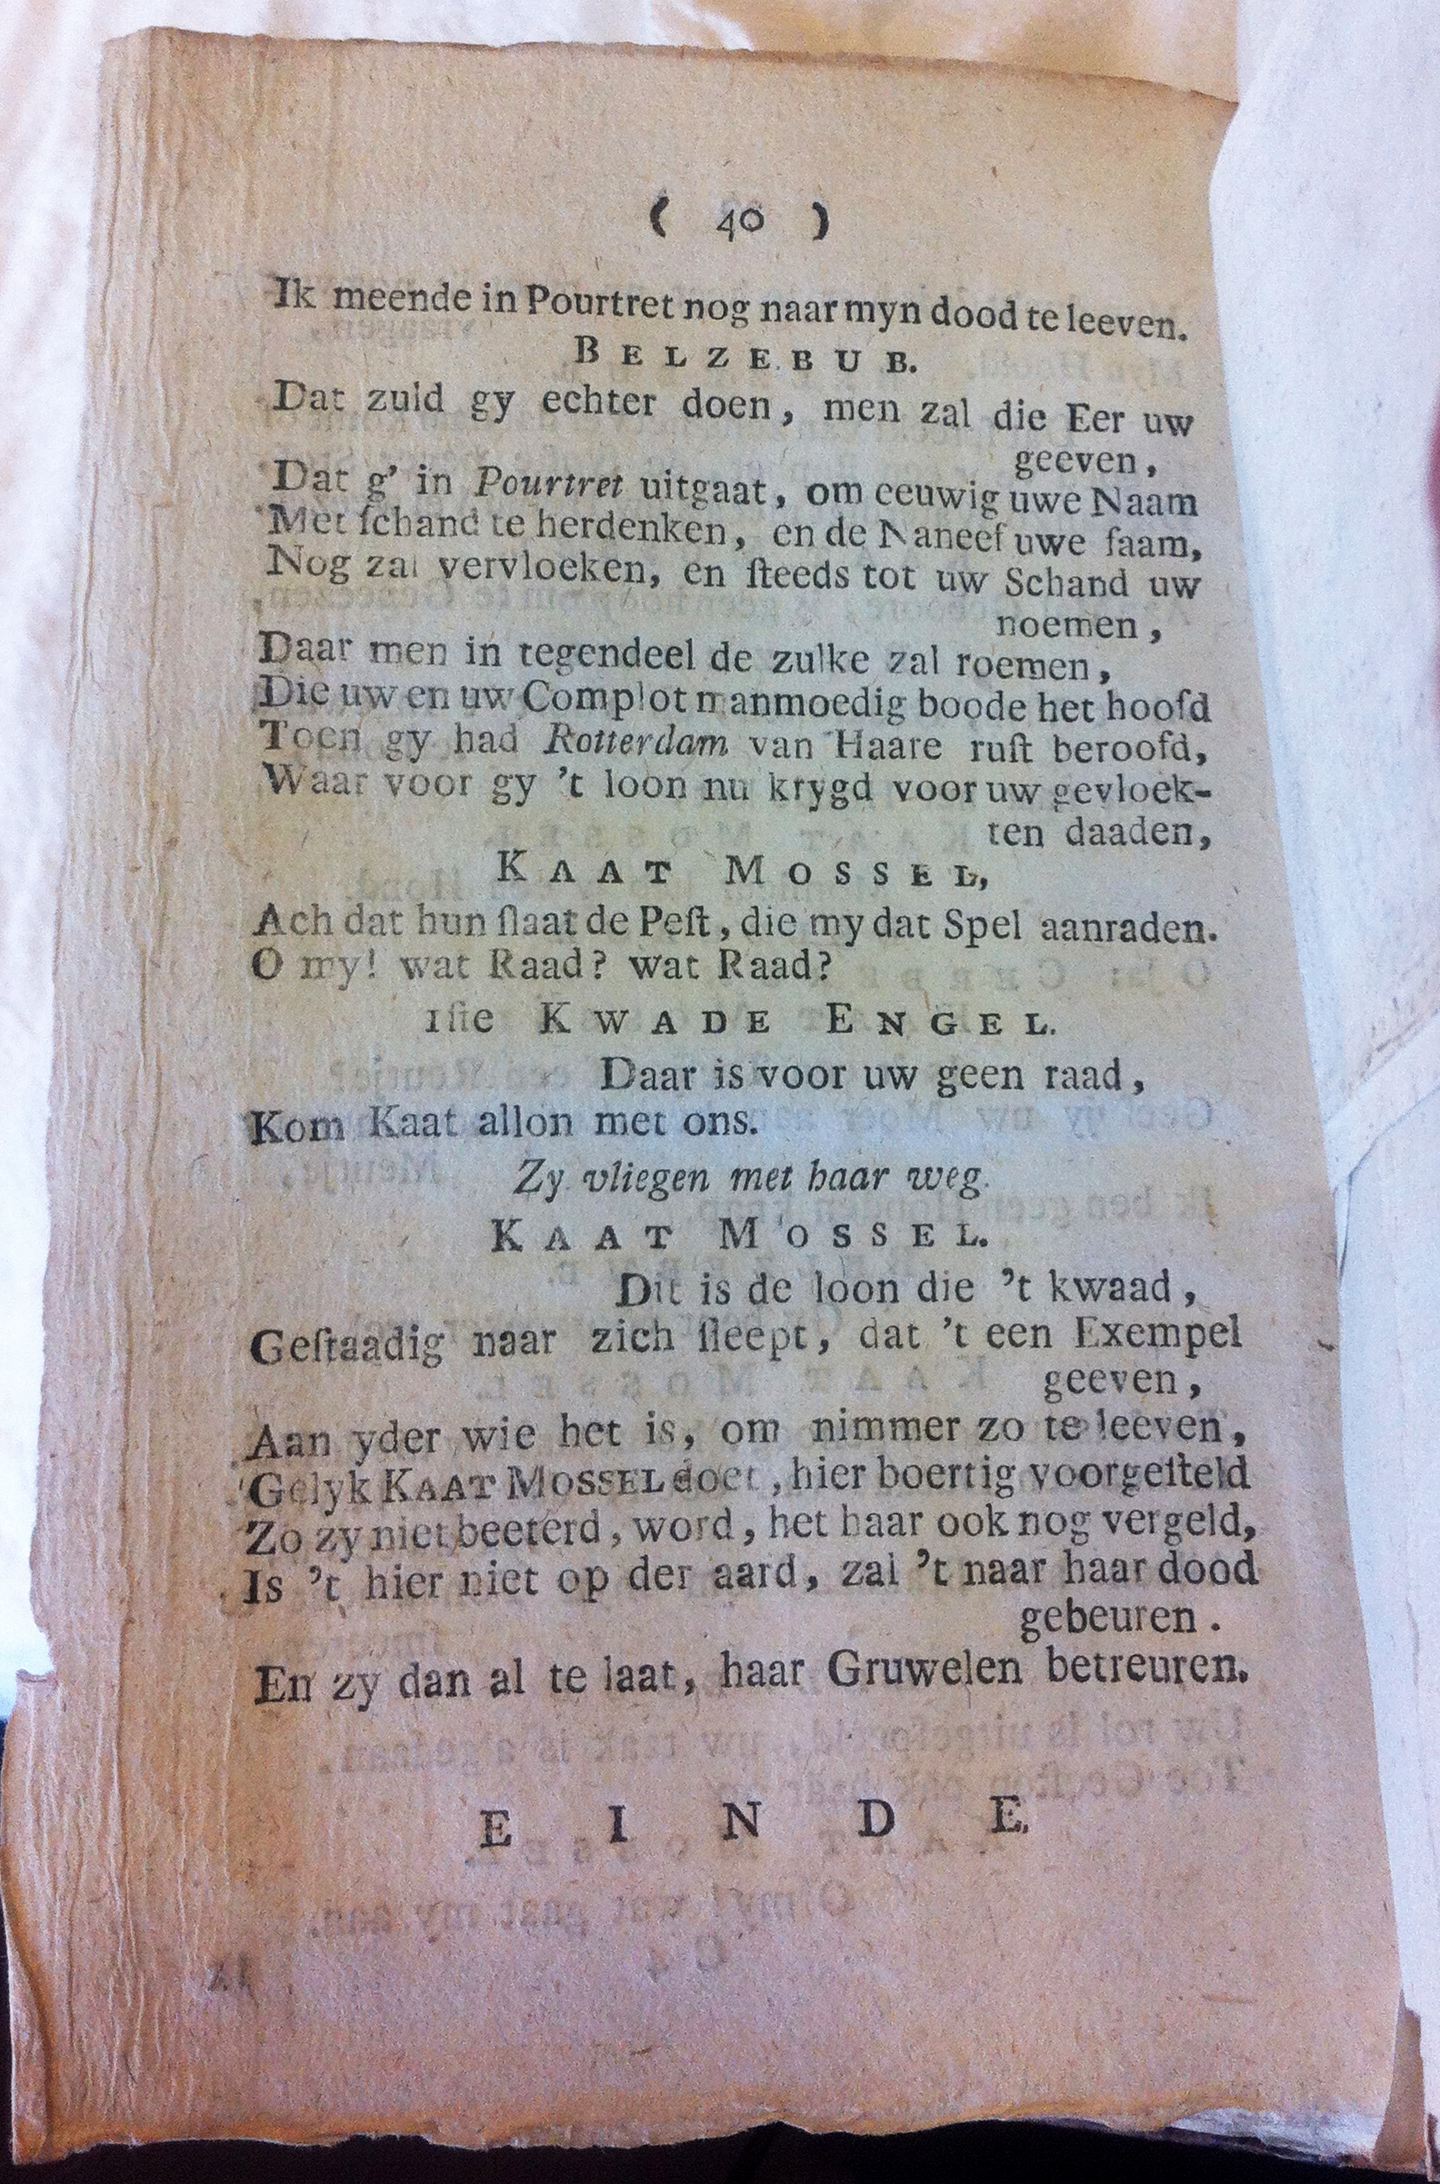 ( 40 )
Ik meende in Pourtret nog naar myn dood te leeven.
BELZEBUB.
Dat zuld gy echter doen, men zal die Eer uw
geeven,
Dat g' in Pourtret uitgaat, om eeuwig uwe Naam
Met ſchand te herdenken, en de Naneef uwe faam,
Nog zal vervloeken, en ſteeds tot uw Schand uw
noemen,
Daar men in tegendeel de zulke zal roemen,
Die uw en uw Complot manmoedig boode het hoofd
Toen gy had Rotterdam van Haare ruſt beroofd,
Waar voor gy 't loon nu krygd voor uw gevloek-
ten daaden,
KAAT MOSSEL,
Ach dat hun ſlaat de Peſt, die my dat Spel aanraden.
O my! wat Raad? wat Raad?
1ſte KWADE ENGEL.
Daar is voor uw geen raad,
Kom Kaat allon met ons.
Zy vliegen met haar weg.
KAAT MOSSEL.
Dit is de loon die 't kwaad,
Geſtaadig naar zich ſleept, dat 't een Exempel
geeven,
Aan yder wie het is, om nimmer zo te leeven,
Gelyk KAAT MOSSEL doet, hier boertig voorgeſteld
Zo zy niet beeterd, word, het haar ook nog vergeld,
Is 't hier niet op der aard, zal 't naar haar dood
gebeuren.
En zy dan al te laat, haar Gruwelen betreuren.
EINDE.